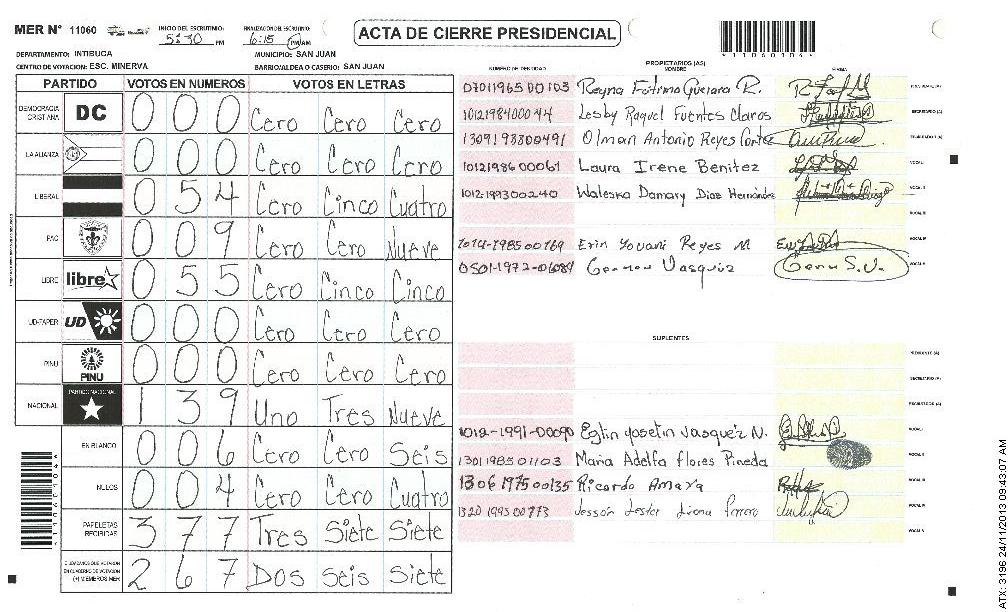 MER N° 11060
INICIO DEL ESCRUTINIO: 5:30 PM
FINALIZACION DEL ESCRUTINIO: 6:15 PM AM
ACTA DE CIERRE PRESIDENCIAL
DEPARTAMENTO: INTIBUCA
MUNICIPIO: SAN JUAN
CENTRO DE VOTACION: ESC. MINERVA
BARRIO/ALDEA O CASERIO: SAN JUAN
PARTIDO VOTOS EN NUMEROS VOTOS EN LETRAS
DEMOCRACIA CRISTIANA DC 0 0 0 Cero Cero Cero
LA ALIANZA 0 0 0 Cero Cero Cero
LIBERAL 0 5 4 Cero Cinco Cuatro
PAC 0 0 9 Cero Cero Nueve
LIBRE libre 0 5 5 Cero Cinco Cinco
UD-FAPER UD 0 0 0 Cero Cero Cero
PINU PINU 0 0 0 Cero Cero Cero
NACIONAL PARTIDO NACIONAL 1 3 9 Uno Tres Nueve
EN BLANCO 0 0 6 Cero Cero Seis
NULOS 0 0 4 Cero Cero Cuatro
PAPELETAS RECIBIDAS 3 7 7 Tres Siete Siete
CIUDADANOS QUE VOTARON EN CUADERNO DE VOTACION (+) MIEMBROS MER 2 6 7 Dos Seis Siete
NUMERO DE IDENTIDAD PROPIETARIOS (AS) NOMBRE FIRMA
07011965 00103 Reyna Fatima Guevara R.
1012198400044 Lesby Raquel Fuentes Claros
1309198800491 Olman Antonio Reyes
1012198600061 Laura Irene Benitez VOCAL I
1012-199300240 Waleska Damary Diaz Hernández VOCAL II
VOCAL III
1014-1985 00169 Erin Yovani Reyes M VOCAL IV
0501-1972-06089 German Vasquez German S.V. VOCAL V
SUPLENTES
PRESIDENTE (A)
SECRETARIO (A)
ESCRUTADOR (A)
1012-1991-00090 Eglin Yosetin Vasquez N. VOCAL I
1301198501103 Maria Adelfa Flores Pineda VOCAL II
1306 1975 00135 Ricardo Amaya VOCAL III
1320 1995 00773 VOCAL IV
VOCAL V
ATX: 3196 24/11/2013 09:43:07 AM